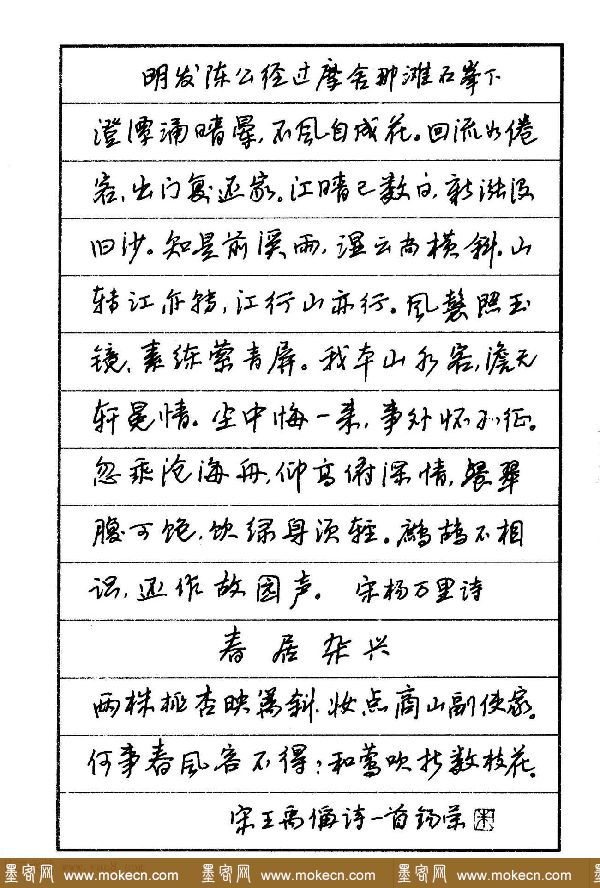 明发陈公径过摩舍那滩石峰下
澄潭涌晴晕，不风自成花。回流如倦
客，出门复还家。江晴已数日，新涨没
旧沙。知是前溪雨，湿云尚横斜。山
转江亦转，江行山亦行。风鬟照玉
镜，素练萦青屏。我本山水客，澹无
轩冕情。尘中悔一来，事外怀孤征。
忽乘沧海舟，仰高俯深情，餐翠
腹可饱，饮绿身须轻。鹧鸪不相
识，还作故园声。 宋杨万里诗
春居杂兴
两株桃杏映篱斜，妆点商山副使家。
何事春风容不得？和莺吹折数枝花。
宋王禹偁诗一首锡荣
墨客网 www.mokecn.com 墨客网 www.mokecn.com 墨客网 www.mokecn.com